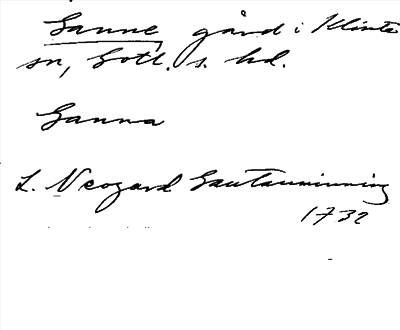 Sanne gård i Klinte
sn, Gotl. s. hd.
Sanna
L. Neogard Gautauminning
1732